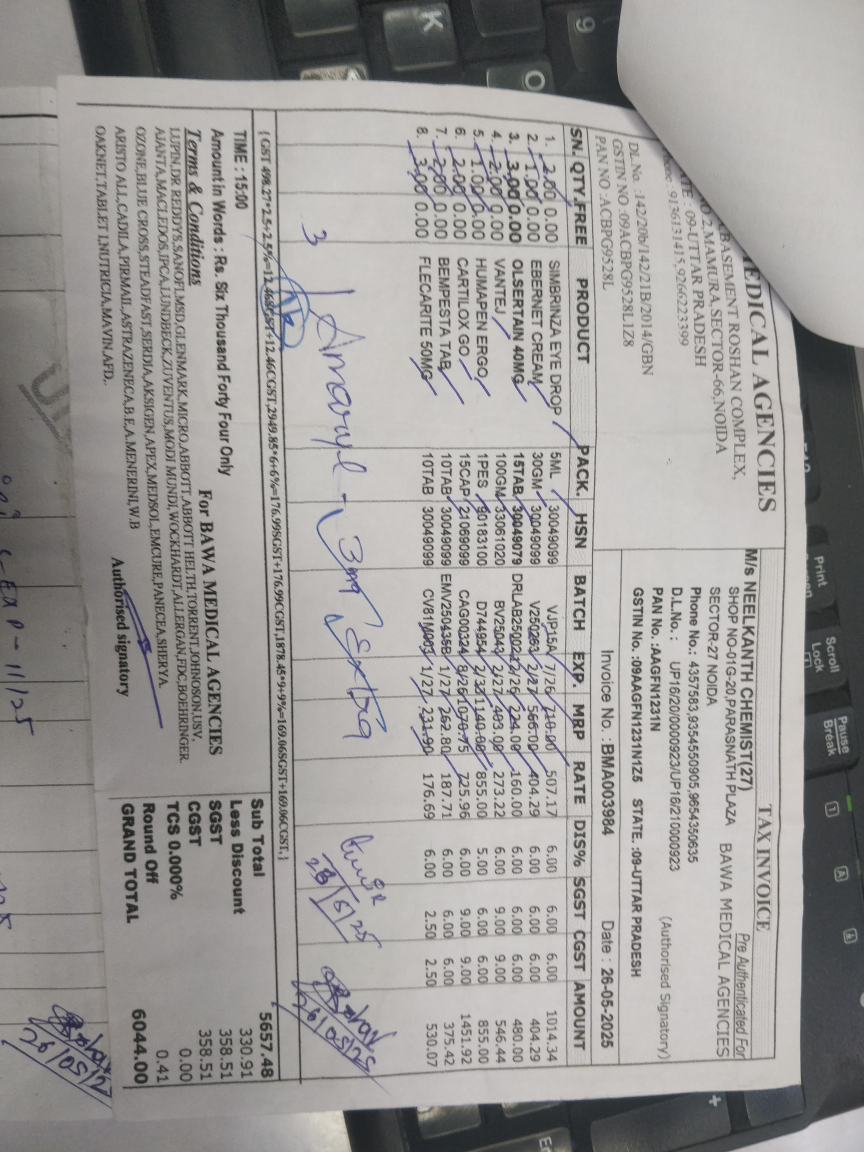 TAX INVOICE
MEDICAL AGENCIES
BASEMENT ROSHAN COMPLEX,
NO 2,MAMURA,SECTOR-66,NOIDA
: 09-UTTAR PRADESH
9136131415,9266223399
DL.No. :142/20b/142/21B/2014/GBN
GSTIN NO :09ACBPG9528L1Z8
PAN NO :ACBPG9528L
Pre Authenticated For
M/s NEELKANTH CHEMIST(27)
BAWA MEDICAL AGENCIES
SHOP NO-01G-20,PARASNATH PLAZA
SECTOR-27 NOIDA
Phone No.: 4357583,9354550905,9654350635
D.L.No.: UP16/20/0000923/UP16/210000923
PAN No. :AAGFN1231N
(Authorised Signatory)
GSTIN No. :09AAGFN1231N1Z5 STATE. :09-UTTAR PRADESH
Invoice No. :BMA003984 Date : 26-05-2025
SN. QTY.FREE PRODUCT PACK. HSN BATCH EXP. MRP RATE DIS% SGST CGST AMOUNT
1. 2.00 0.00 SIMBRINZA EYE DROP 5ML 30049099 VJP15A 7/26 507.17 6.00 6.00 6.00 1014.34
2. 1.00 0.00 EBERNET CREAM 30GM 30049099 2/27 566.00 404.29 6.00 6.00 6.00 404.29
3. 3.00 0.00 OLSERTAIN 40MG 15TAB 30049079 224.00 160.00 6.00 6.00 6.00 480.00
4. 2.00 0.00 VANTEJ 100GM 33061020 BV25043 2/27 403.00 273.22 6.00 9.00 9.00 546.44
5. 1.00 0.00 HUMAPEN ERGO 1PES 90183100 D744954 2/33 1140.00 855.00 5.00 6.00 6.00 855.00
6. 2.00 0.00 CARTILOX GO 15CAP 21069099 CAG00324 8/26 725.96 6.00 9.00 9.00 1451.92
7. 2.00 0.00 BEMPESTA TAB 10TAB 30049099 EMV250435B 1/27 262.80 187.71 6.00 6.00 6.00 375.42
8. 3.00 0.00 FLECARITE 50MG 10TAB 30049099 1/27 231.90 176.69 6.00 2.50 2.50 530.07
3 Amaryl - 3mg
28/5/25
{ GST 498.27*2.5+2.5%=12.46SGST+12.46CGST,2949.85*6+6%=176.99SGST+176.99CGST,1878.45*9+9%=169.06SGST+169.06CGST,}
TIME : 15:00
Sub Total 5657.48
Less Discount 330.91
SGST 358.51
CGST 358.51
TCS 0.000% 0.00
Round Off 0.41
GRAND TOTAL 6044.00
Amount in Words : Rs. Six Thousand Forty Four Only
Terms & Conditions
For BAWA MEDICAL AGENCIES
LUPIN,DR REDDYS,SANOFI,MSD,GLENMARK,MICRO,ABBOTT,ABBOTT HELTH,TORRENT,JOHNOSON,USV,
AJANTA,MACLEDOS,IPCA,LUNDBECK,ZUVENTUS,MODI MUNDI,WOCKHARDT,ALLERGAN,FDC,BOEHRINGER
OZONE,BLUE CROSS,STEADFAST,SERDIA,AKSIGEN,APEX,MEDSOL,EMCURE,PANECEA,SHERYA.
ARISTO ALL,CADILA,PIRMAIL,ASTRAZENECA,B.E,A.MENERINI,W.B
OAKNET,TABLET I,NUTRICIA,MAVIN,AFD,.
Authorised signatory
EXP - 11/25
K
9
O
Print
Scroll
Lock
Pause
Break
+